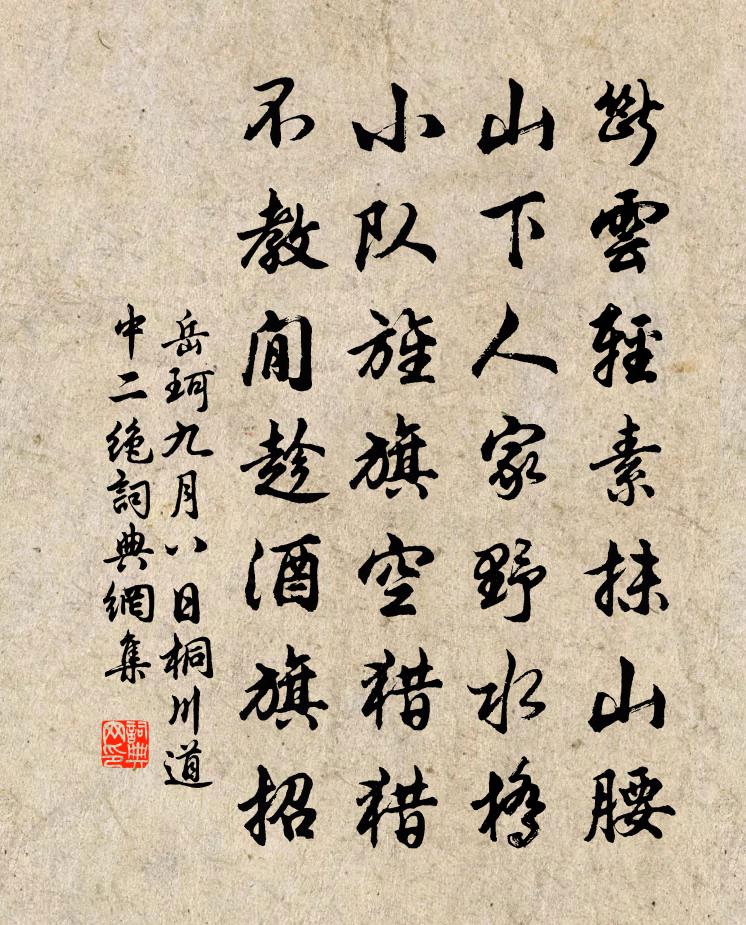 斷雲輕素抹山腰
山下人家野水橋
小队旌旗空猎猎
不教閒趁酒旗招
岳珂九月八日桐川道
中二絶詞典網集
詞典
网印